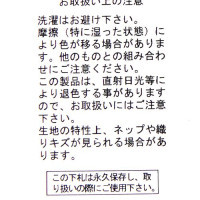 お取扱い上の注意
洗濯はお避け下さい。
摩擦（特に湿った状態）に
より色が移る場合がありま
す。他のものとの組み合わ
せにご注意ください。
この製品は、直射日光等に
より退色する事があります
ので、お取扱いにはご注意
下さい。
生地の特性上、ネップや織
りキズが見られる場合があ
ります。
この下札は永久保存し、取
り扱いの際にご使用下さい。